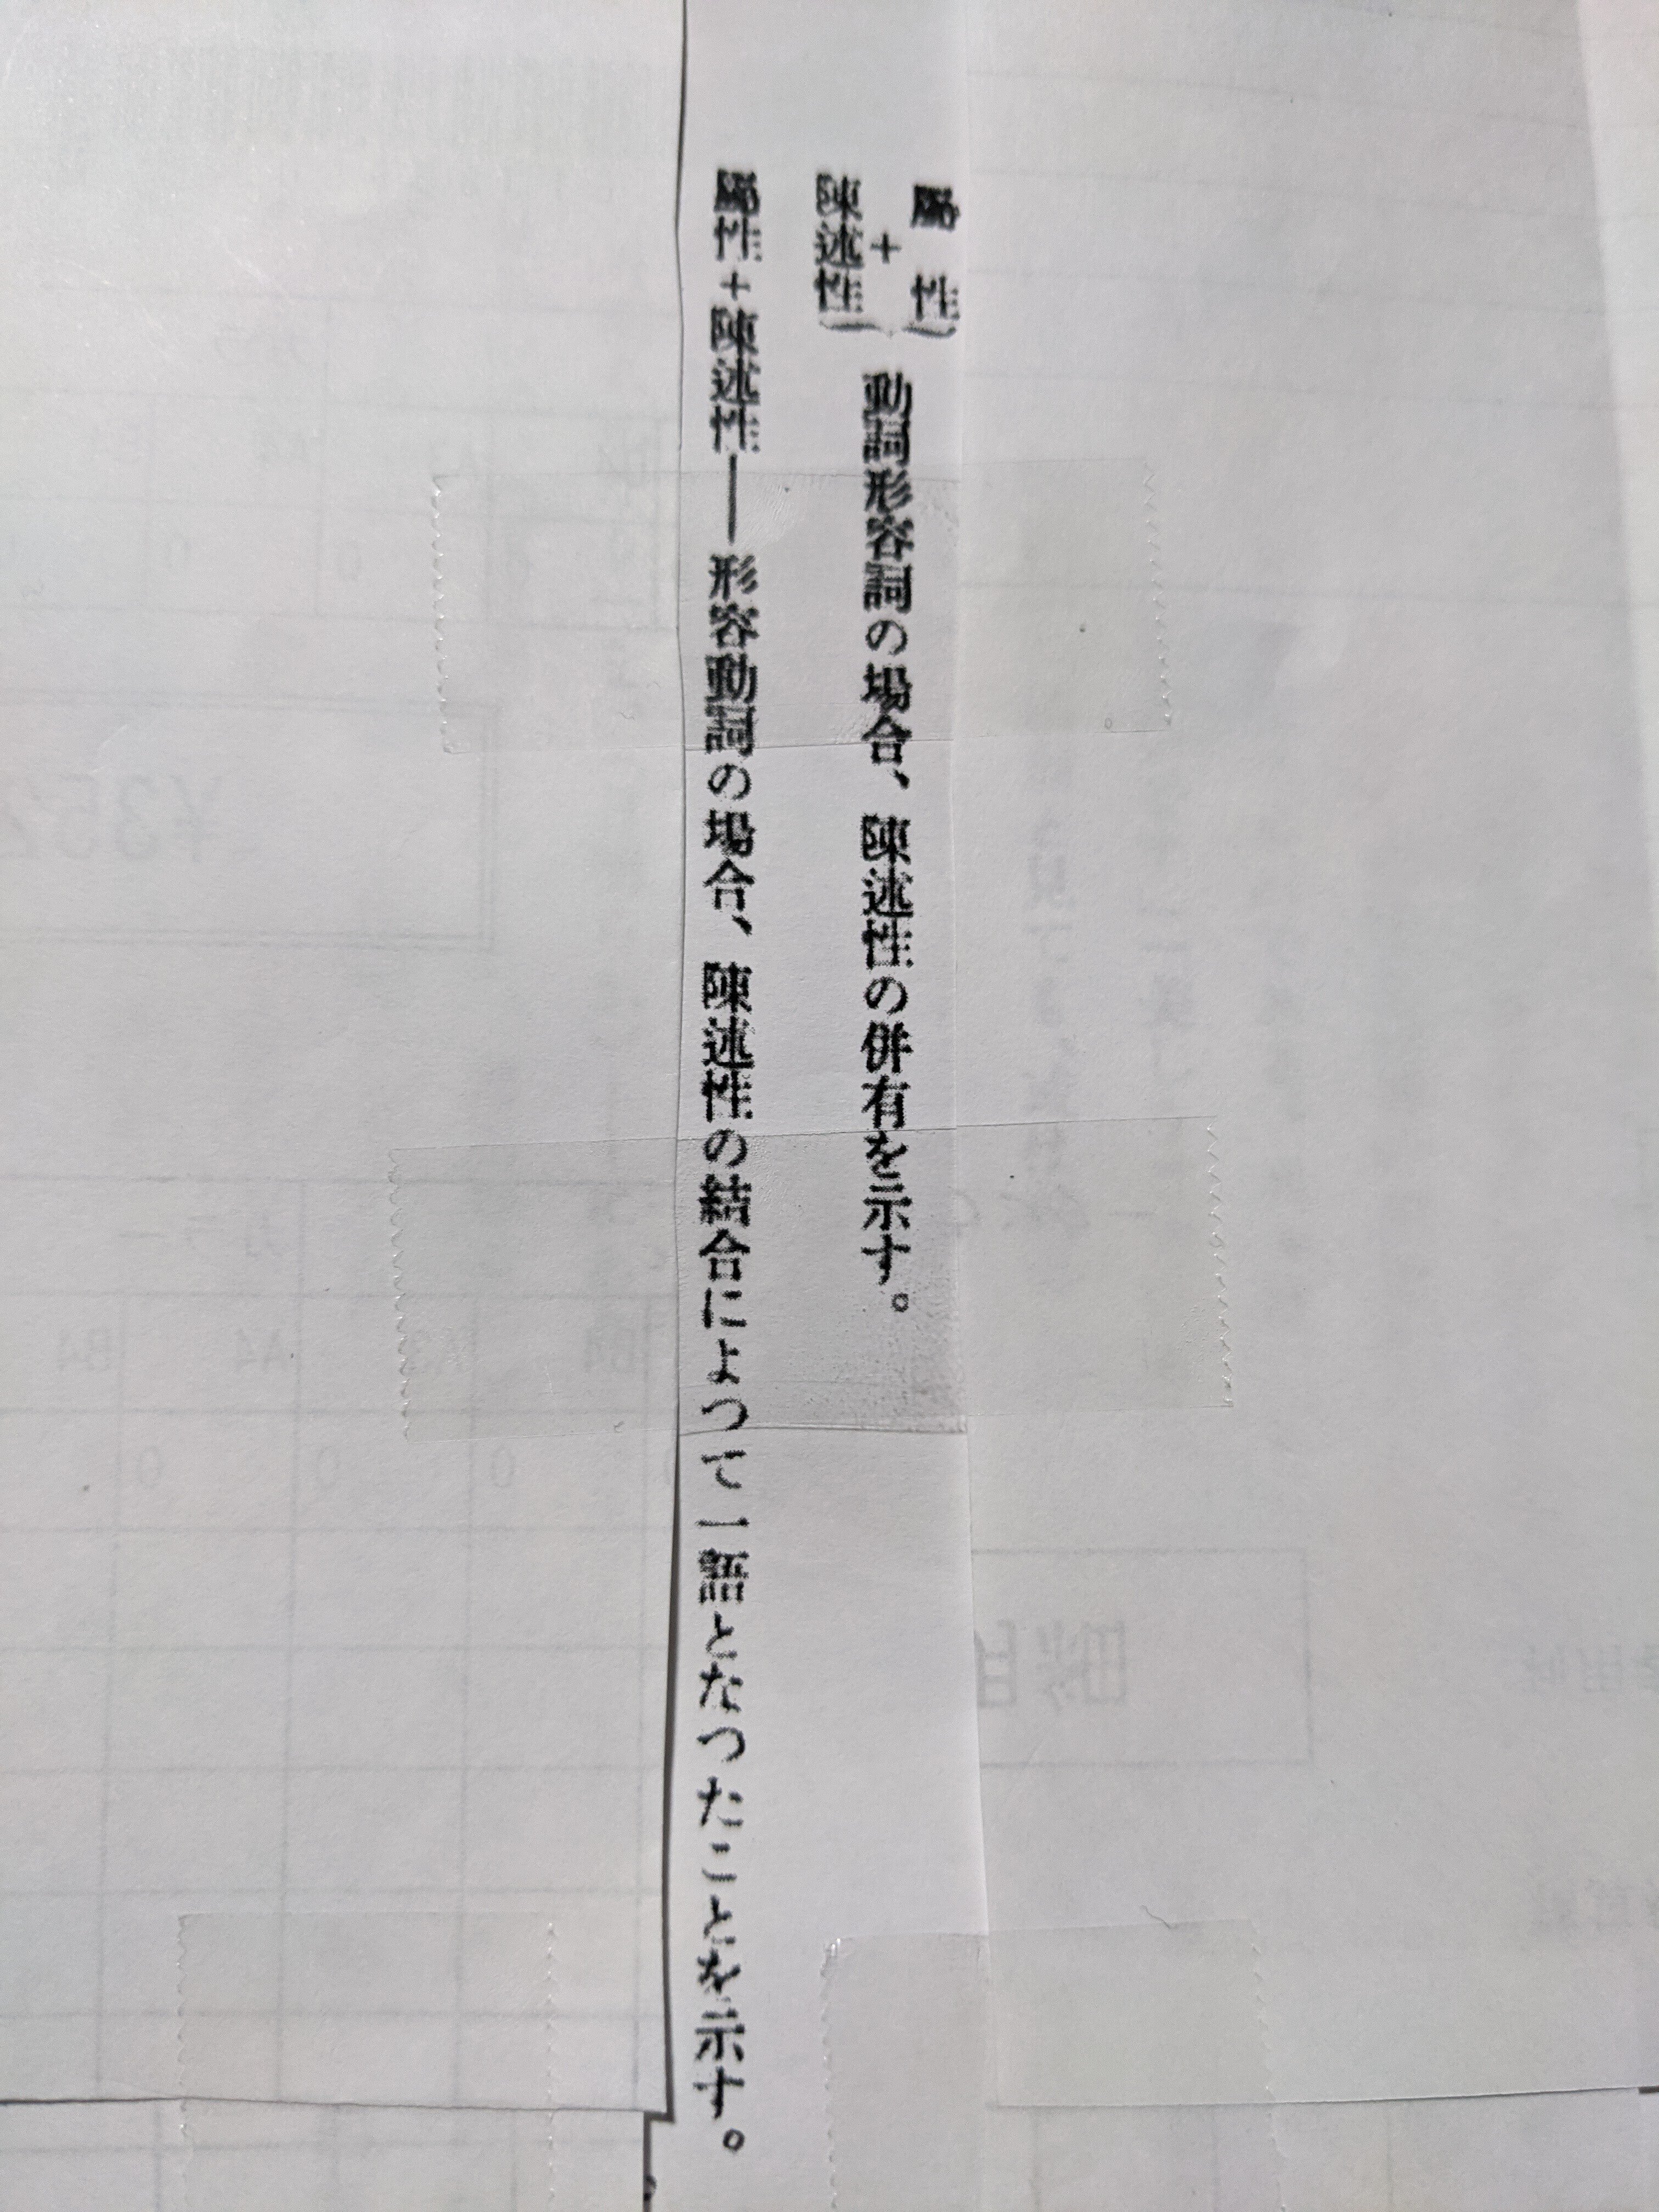 屬性
+
陳述性
動詞形容詞の場合、陳述性の併有を示す。
屬性+陳述性――形容動詞の場合、陳述性の結合によつて一語となつたことを示す。